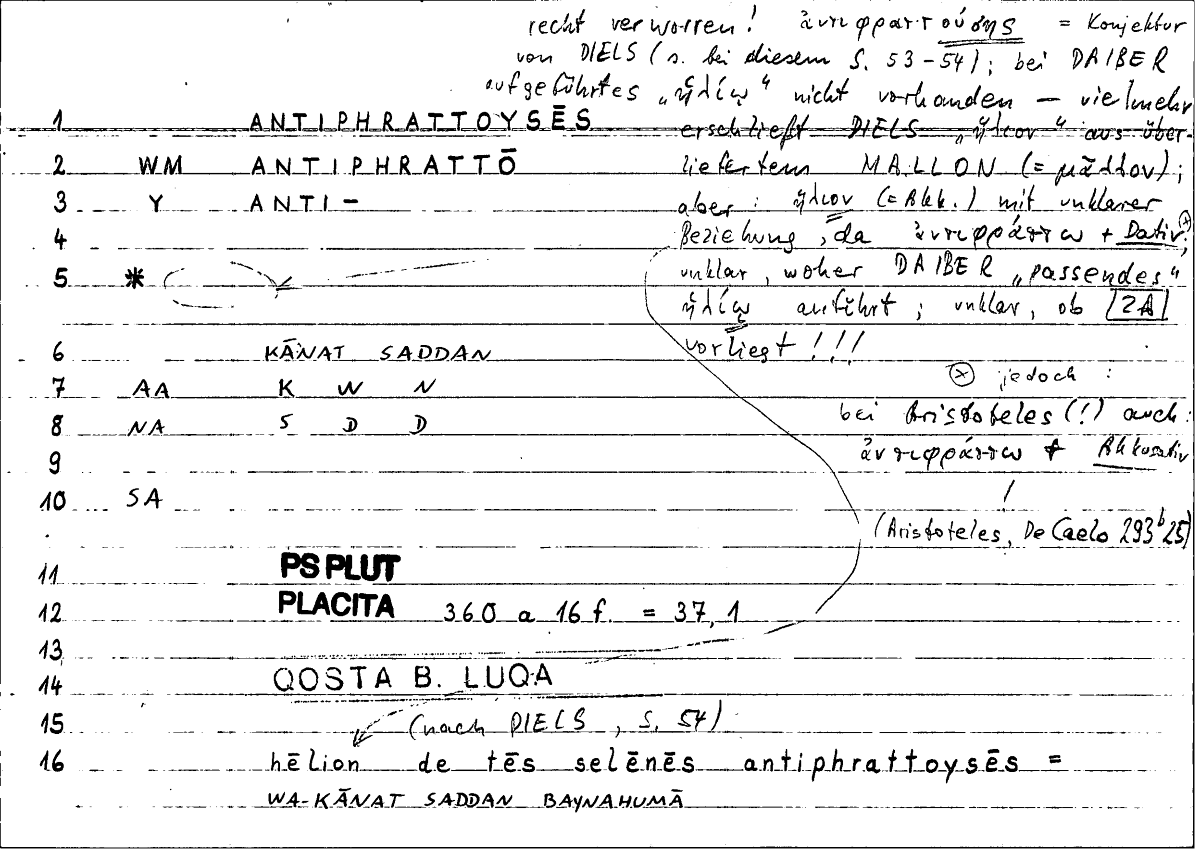 recht verworren! ἀντιφραττούσης = Konjektur
von DIELS (s. bei diesem S. 53-54); bei DAIBER
aufgeführtes „ἡλίῳ“ nicht vorhanden – vielmehr
1 ANTIPHRATTOYSĒS
erschließt DIELS „ἥλιον“ aus über-
2 WM ANTIPHRATTŌ
liefertem MALLON (= μᾶλλον);
3 Y ANTI-
aber: ἥλιον (= Akk.) mit unklarer
4
Beziehung, da ἀντιφράττω + Dativ ⊗;
5 *
unklar, woher DAIBER „passendes“
ἡλίῳ anführt; unklar, ob 2A
6 KĀNAT SADDAN
vorliegt!!!
7 AA K W N
⊗ jedoch:
8 NA S D D
bei Aristoteles (!) auch:
9
ἀντιφράττω + Akkusativ
10 SA
(Aristoteles, De Caelo 293ᵇ25)
11 PS PLUT
12 PLACITA 360 a 16 f. = 37,1
13
14 QOSTA B. LUQA
15 (nach DIELS, S. 54)
16 hēlion de tēs selēnēs antiphrattoysēs =
WA-KĀNAT SADDAN BAYNAHUMĀ